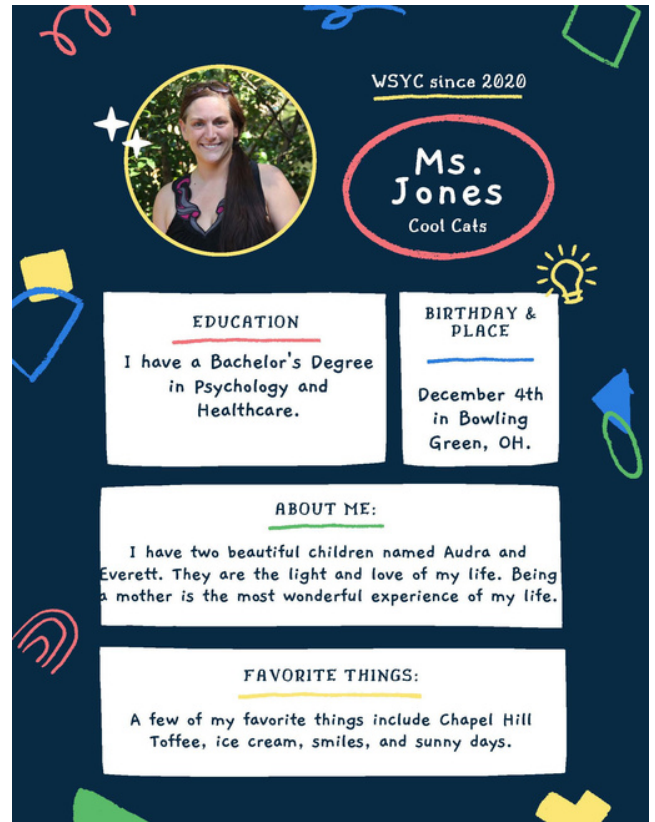 WSYC since 2020
Ms.
Jones
Cool Cats
EDUCATION
I have a Bachelor's Degree
in Psychology and
Healthcare.
BIRTHDAY &
PLACE
December 4th
in Bowling
Green, OH.
ABOUT ME:
I have two beautiful children named Audra and
Everett. They are the light and love of my life. Being
a mother is the most wonderful experience of my life.
FAVORITE THINGS:
A few of my favorite things include Chapel Hill
Toffee, ice cream, smiles, and sunny days.